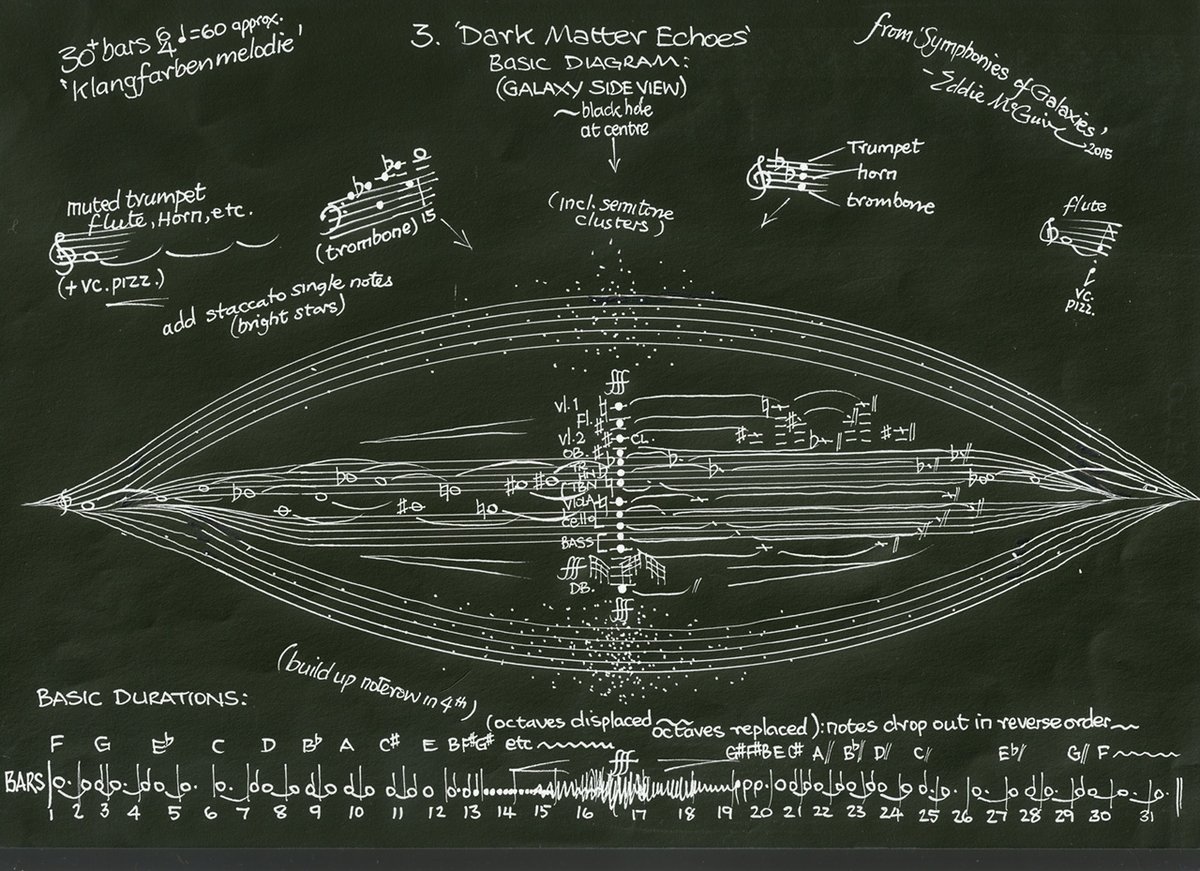 30+ bars 6/4 ♩=60 approx.
'Klangfarbenmelodie'
3. 'Dark Matter Echoes'
BASIC DIAGRAM:
(GALAXY SIDE VIEW)
~black hole
at centre
from 'Symphonies of Galaxies'
- Eddie McGuire
2015
muted trumpet
flute, Horn, etc.
(+ vc. pizz.)
15
(trombone)
add staccato single notes
(bright stars)
(incl. semitone
clusters)
Trumpet
horn
trombone
flute
vc.
pizz.
fff
vl.1
Fl.
vl.2
CL.
OB.
TR.
HN
TBN
VIOLA
cello
BASS
fff
DB.
fff
(build up noterow in 4th)
BASIC DURATIONS:
(octaves displaced~~octaves replaced):notes drop out in reverse order~
F G E♭ C D B♭ A C# E B F# G# etc~~~ fff G# F# B E C# A// B♭/ D// C// E♭/ G// F~~~
BARS
1 2 3 4 5 6 7 8 9 10 11 12 13 14 15 16 17 18 19 20 21 22 23 24 25 26 27 28 29 30 31